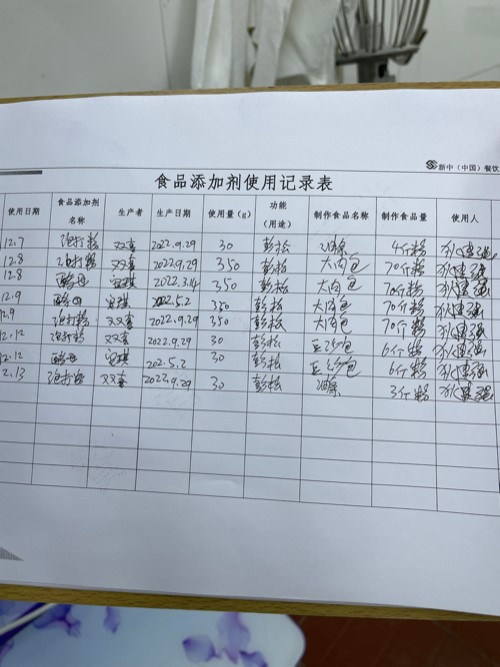 新中（中国）餐饮
食品添加剂使用记录表
使用日期 食品添加剂名称 生产者 生产日期 使用量（g） 功能（用途） 制作食品名称 制作食品量 使用人
12.7 泡打粉 双喜 2022.9.29 30 彭松 油条 4斤粉
12.8 泡打粉 双喜 2022.9.29 350 彭松 大肉包 70斤粉
12.8 酵母 2022.3.14 350 彭松 大肉包 70斤粉
12.9 酵母 2022.5.2 350 彭松 大肉包 70斤粉
12.9 泡打粉 双喜 2022.9.29 350 彭松 大肉包 70斤粉
12.12 泡打粉 双喜 2022.9.29 30 彭松 豆沙包 6斤粉
12.12 酵母 202.5.2 30 彭松 豆沙包 6斤粉
2.13 泡打粉 双喜 2022.9.29 30 彭松 油条 3斤粉